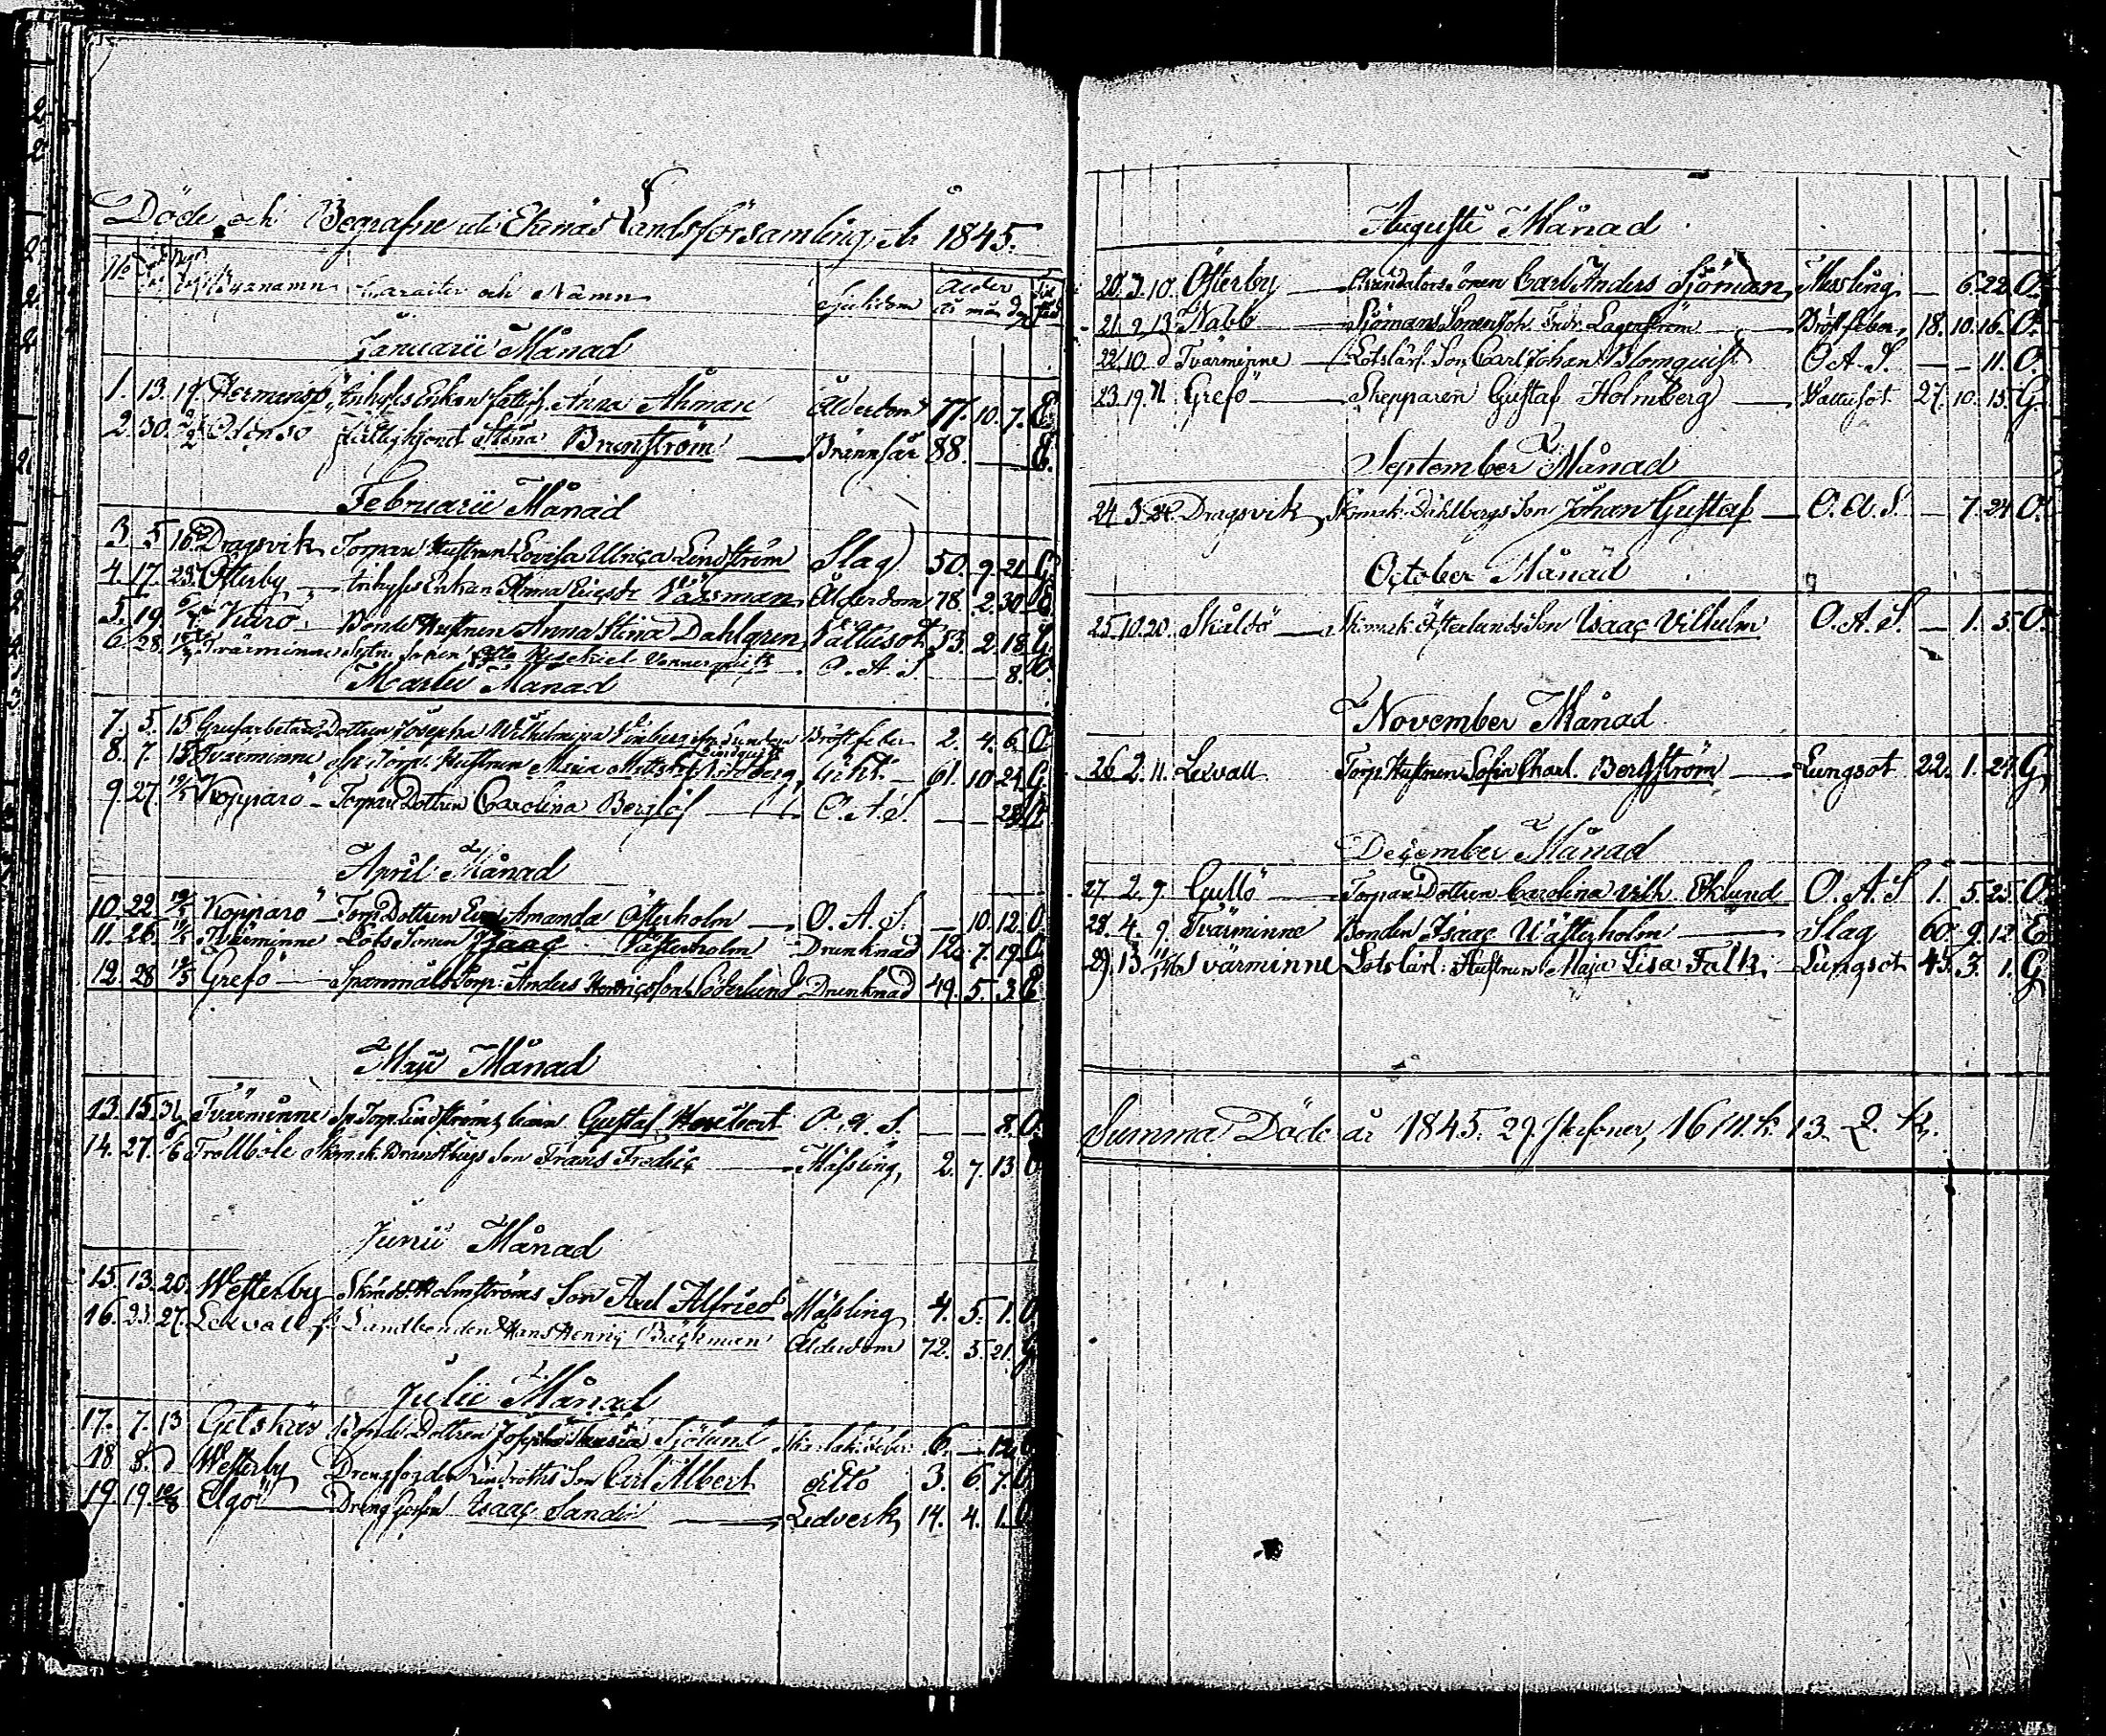 Döde och Begrafne uti Ekenäs Landsförsamling År 1845.
No Bynamn Caracter och Namn Sjukdom Ålder år mån dag
Januarii Månad
1. 13. 19. Hermansö Inhyses Enkan Anna Åhman Ålderdom 77. 10. 7. E.
2. 30. 2/2 Odensö Fattighjonet Stina Brunström Brännsår 88. E.
Februarii Månad
3. 5. 16. Dragsvik Torpare Hustrun Lovisa Ulrica Lindström Slag 50. 9. 21. G.
4. 17. 23. Österby Inhyses Enkan Anna Ålderdom 78. 2. 30. E.
5. 19. Bonde Hustrun Anna Stina Dahlgren Vattusot 53. 2. 18. G.
6. 28. Tvärminne Sonen O. A. S. 8. O.
Martii Månad
7. 5. 15 Grufarbetare Dottren Josepha Wilhelmina Bröstfeber 2. 4. 6. O.
8. 7. 15 Tvärminne Torp. Hustrun Maja 61. 10. 24. G.
9. 27. Kopparö Torpare Dottren Carolina Berglöf O. A. S. 28. O.
April Månad
10. 22. Kopparö Torp. Dottren Eva Amanda Österholm O. A. S. 10. 12. O.
11. 26. Tvärminne Lots Sonen Isaac Västerholm Drunknad 12. 7. 19. O.
12. 28 Grefö Torp. Anders Söderlund Drunknad 49. 5. 3. E.
Maji Månad
13. 15. Tvärminne Torp. Lindströms barn Gustaf Heribert O. A. S. 8. O.
14. 27. Trollböle Son Frans Fredric Mässling 2. 7. 13. O.
Junii Månad
15. 13. 20. Westerby Holmströms Son Axel Alfried Mässling 4. 5. 1. O.
16. 23. 27. Lexvall Landbonden Hans Henric Bäckman Ålderdom 72. 5. 21. G.
Julii Månad
17. 7. 13 Gitskär Bonde Dottren Sjölund Skarlak. Feber 6. — 12. O.
18. 8. d Westerby Lindroths Son Carl Albert ditto 3. 6. 7. O.
19. 19. 10/8 Elgö Isaac Sandin Ledverk 14. 4. 1. O.
Augusti Månad
20. 3. 10. Österby Arendators sonen Carl Anders Sjöman Messling — 6. 22. O.
21. 9. 13. Nabb Sjömans Sonen Joh. Fredr. Lagerström Bröstfeber 18. 10. 16. O.
22. 10. d Tvärminne Lotslärl. Son Carl Johan Blomquist O. A. S. — — 11. O.
23. 19. 21. Grefö Skepparen Gustaf Holmberg Vattusot 27. 10. 15. G.
September Månad
24. 3. Dragsvik Skomak. Dahlbergs Son Johan Gustaf O. A. S. — 7. 24. O.
October Månad
25. 10. 20. Skåldö Skomak. Österlunds Son Isaac Vilhelm O. A. S. — 1. 5. O.
November Månad
26. 2. 11. Lexvall Torp. Hustrun Sofia Charl. Bergström Lungsot 22. 1. 24. G.
December Månad
27. 2. 9. Gullö Torpare Dottren Carolina Vilh. Eklund O. A. S 1. 5. 25. O.
28. 4. 9. Tvärminne Bonden Isaac Wästerholm Slag 60. 9. 12. E.
29. 13. Tvärminne Lotslärl. Hustrun Maja Lisa Falk Lungsot 43. 3. 1. G.
Summa Döde år 1845. 29. Personer, 16 M. K. 13. Q. K.